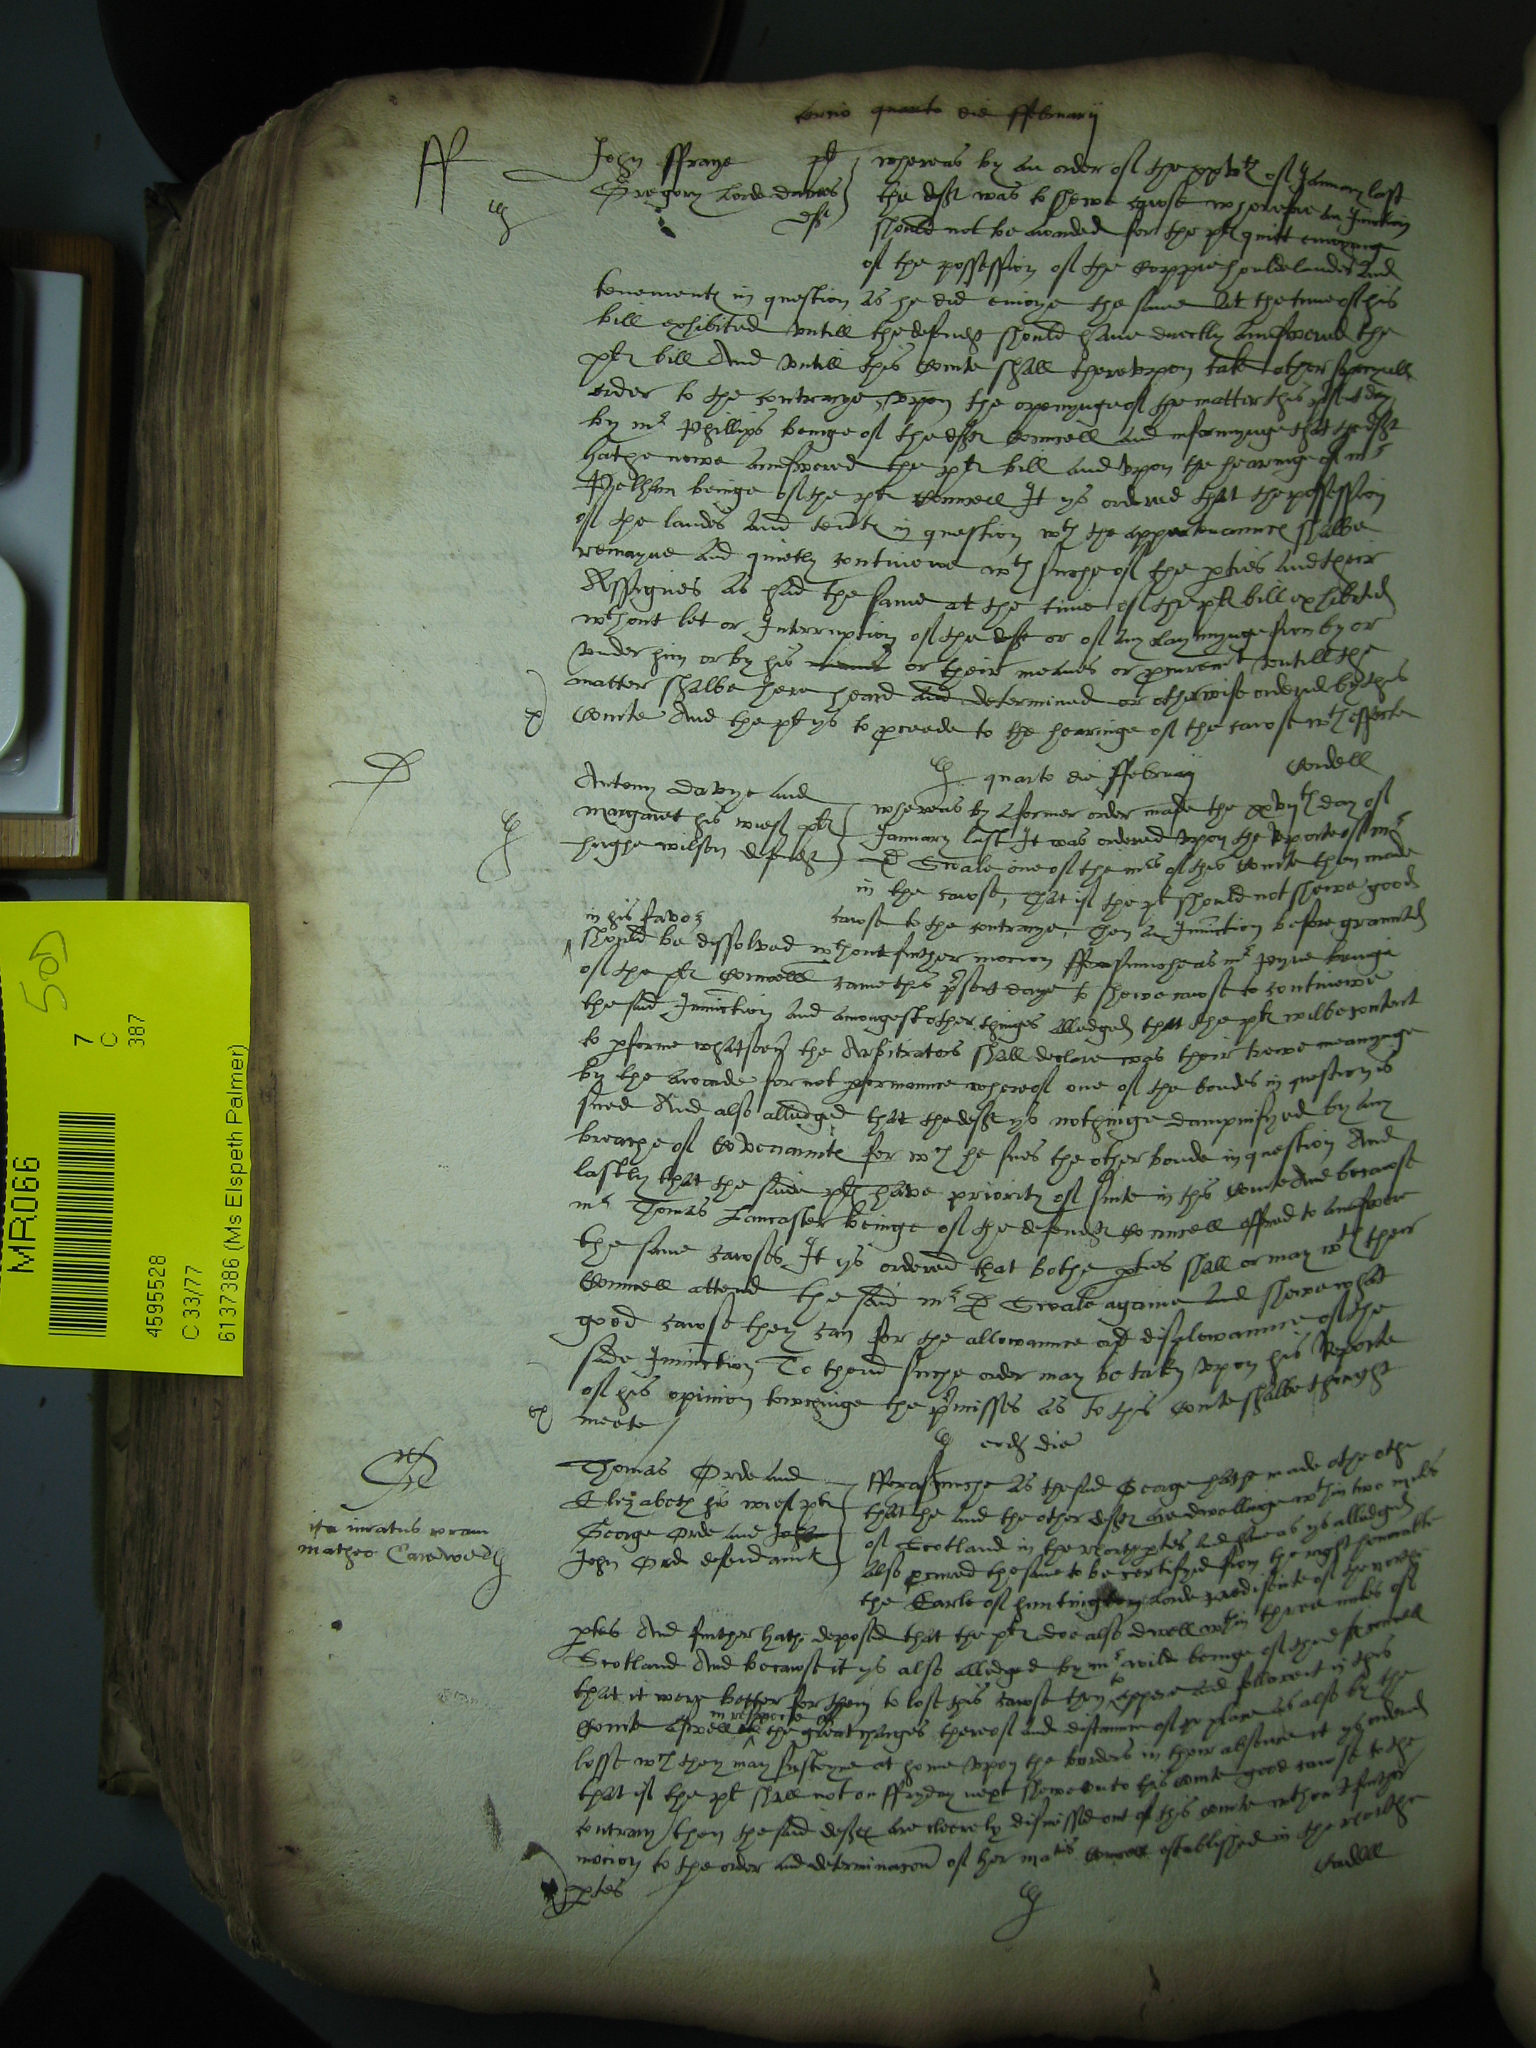 tercio quarto die ffebruarij
ff
John ffraye plt
Gregory Lorde Dacres
deft
whereas by an order of the xxvth of January last
the deft was to shewe cawse wherefore an Iniunction
should not be awarded for the plt quiet enioying
of the possession of the Coppiehould landes and
tenementes in question as he did enioye the same at the time of his
bill exhibited untill the defendt should have directly annswered the
plt bill And untill this Courte shall thereupon take other speciall
order to the contrarye, upon the openynge of the matter this present day
by mr Phillips beinge of the deft Councell and informynge that the deft
hathe nowe annswered the plt bill and upon the hearinge of mr
Pelham beinge of the plt Councell It ys ordered that the possession
of the landes and tentes in question wth the appertenannces shalbe
remayne and quietly contineue wth suche of the pties and their
Assignes as had the same at the time of the plt bill exhibited
wthout let or Interruption of the deft or of any claymynge from by or
under him or by his meanes or their meanes or procurement untill the
matter shalbe here heard and determined or otherwise ordered by this
Courte And the plt ys to proceede to the hearinge of the cawse wth effecte
Cordell
quarto die ffebruarij
D
Antony Davye and
Margaret his wief plt
Hughe Wilson defendt
whereas by a former order made the xxvijth day of
January last It was ordered upon the Reporte of mr
D Swale one of the mrs of this Courte then made
in the cawse, that if the plt should not shewe good
cawse to the contrarye, then an Iniunction before graunted
in his favor
should be dissolved wthout further mocion fforasmuche as mr Payne beinge
of the plt Councell came this present daye to shewe cawse to contineue
the said Iniunction and amongest other thinges alledged that the plt wilbe content
to pforme whatsoever the Arbitrators shall declare was their trewe meanynge
by the awarde for not pformannce whereof one of the bondes in question is
sued And also alledged that the deft ys nothinge dampnifyed by any
breache of Covenannte for wch he sues the other bonde in question And
lastly that the saide plt have priority of suite in this Courte And becawse
mr Thomas Lancaster beinge of the defendt Councell offred to annswer
the same cawses It ys ordered that bothe pties shall or may wth their
Councell attend the said mr D Swale againe and shewe what
good cawse they can for the allowannce or disalowannce of the
saide Iniunction To thend suche order may be taken upon his Reporte
of his opinion towchinge the premisses as to this Courte shalbe thought
meete
eodem die
Thomas Orde and
Elizabeth his wief plt
George Orde and John
John Orde defendannts
ita iuratus coram
matheo Carew
fforasmuche as the said George hathe made othe
that he and the other deft are dwellinge wthin two myles
of Scotland in the northe ptes and have as ys alledged
also procured the same to be certifyed from the right honorable
the Earle of huntingdon Lorde president of the northe
ptes And further hathe deposed that the plt doe also dwell wthin three miles of
Scotland And becawse it ys also alledged by mr Wilde beinge of the deft Councell
that it were better for them to lose this cawse then to appere and followe it in this
Courte aswell in respecte of the great charges thereof and distannce of the place as also by the
losse wch they may susteyne at home upon the borders in their absence it ys ordered
that if the plt shall not on ffryday next shewe unto this Courte good cawse to the
contrary then the said deft are cleerely dismissed out of this Courte wthout further
mocion to the order and determinacon of her mates Councell established in the northe
ptes
Cordell
MR066
7
C
387
4595528
C 33/77
6137386 (Ms Elspeth Palmer)